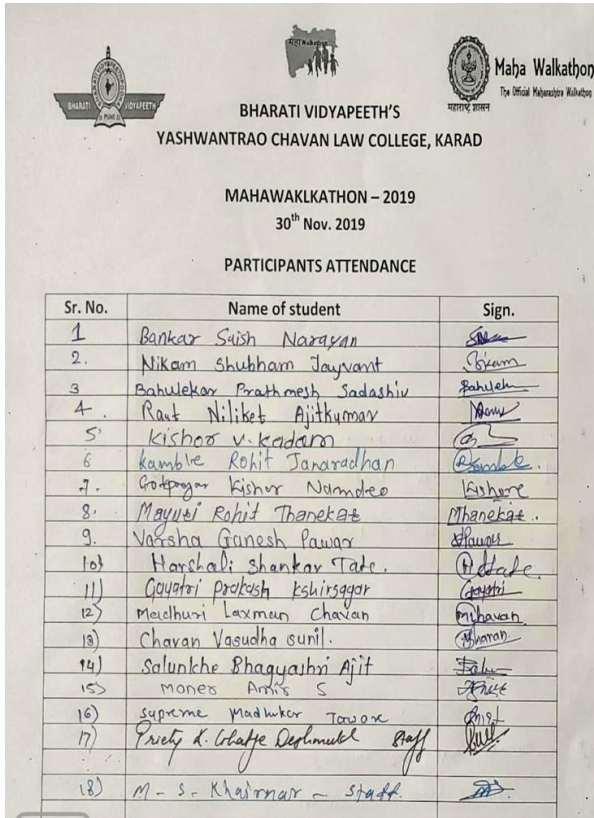 महा Walkathon
BHARATI VIDYAPEETH
PUNE
महाराष्ट्र शासन
Maha Walkathon
The Official Maharashtra Walkathon
BHARATI VIDYAPEETH'S
YASHWANTRAO CHAVAN LAW COLLEGE, KARAD
MAHAWAKLKATHON – 2019
30th Nov. 2019
PARTICIPANTS ATTENDANCE
Sr. No. Name of student Sign.
1 Bankar Suish Narayan
2. Nikam Shubham Jayvant
3 Bahulekar Prathmesh Sadashiv Bahulek
4. Raut Niliket Ajitkumar
5 Kishor V. Kadam
6 Kamble Rohit Janaradhan
7. Kishor Namdeo Kishore
8. Mayuri Rohit Thanekar Mhanekar..
9. Varsha Ganesh Pawar Pawar
10) Harshali Shankar Tate. HTate.
11) Gayatri prakash kshirsagar Gayatri
12) Madhuri Laxman Chavan Mchavan
13) Chavan Vasudha sunil.
14) Salunkhe Bhagyashri Ajit
15) Moner Amir S
16) Supreme Madhukar Taware
17) Deshmukh Staff
18) M - S - Khairnar - Staff.